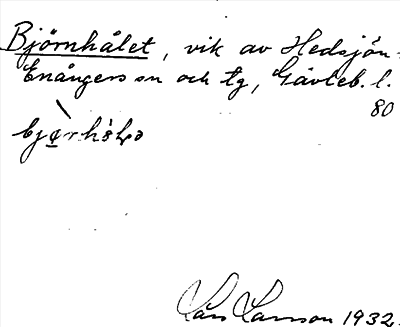 Björnhålet, vik av Hedsjön.
Enångers sn och tg, Gävleb. l.
80
Lars Larsson 1932.